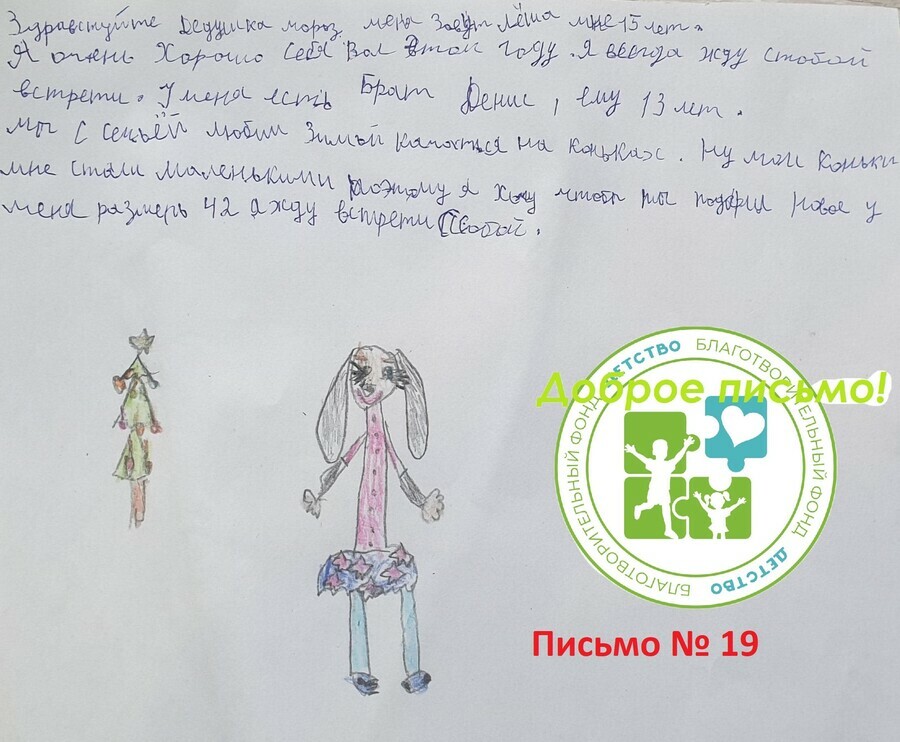 Здравстуйте Дедушка мороз меня Зовут Лёша мне 15 лет.
Я очень Хорошо Себя Вол Втом году. Я всегда жду стобой
встрети. У меня есть Брат Денис, ему 13 лет.
мы с семьёй любим Зимый катоться на коньках. Ну мои Коньки
мне стали маленькими поэтому я хочу чтобы ты подарил новое у
меня размерь 42 я жду встрети Стобой.
Доброе письмо!
БЛАГОТВОРИТЕЛЬНЫЙ ФОНД ДЕТСТВО
БЛАГОТВОРИТЕЛЬНЫЙ ФОНД ДЕТСТВО
Письмо № 19